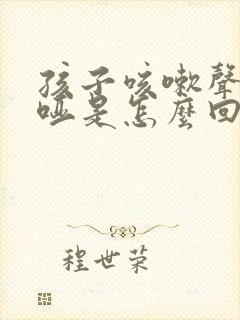 孩子咳嗽聲
啞是怎麼回
程世荣